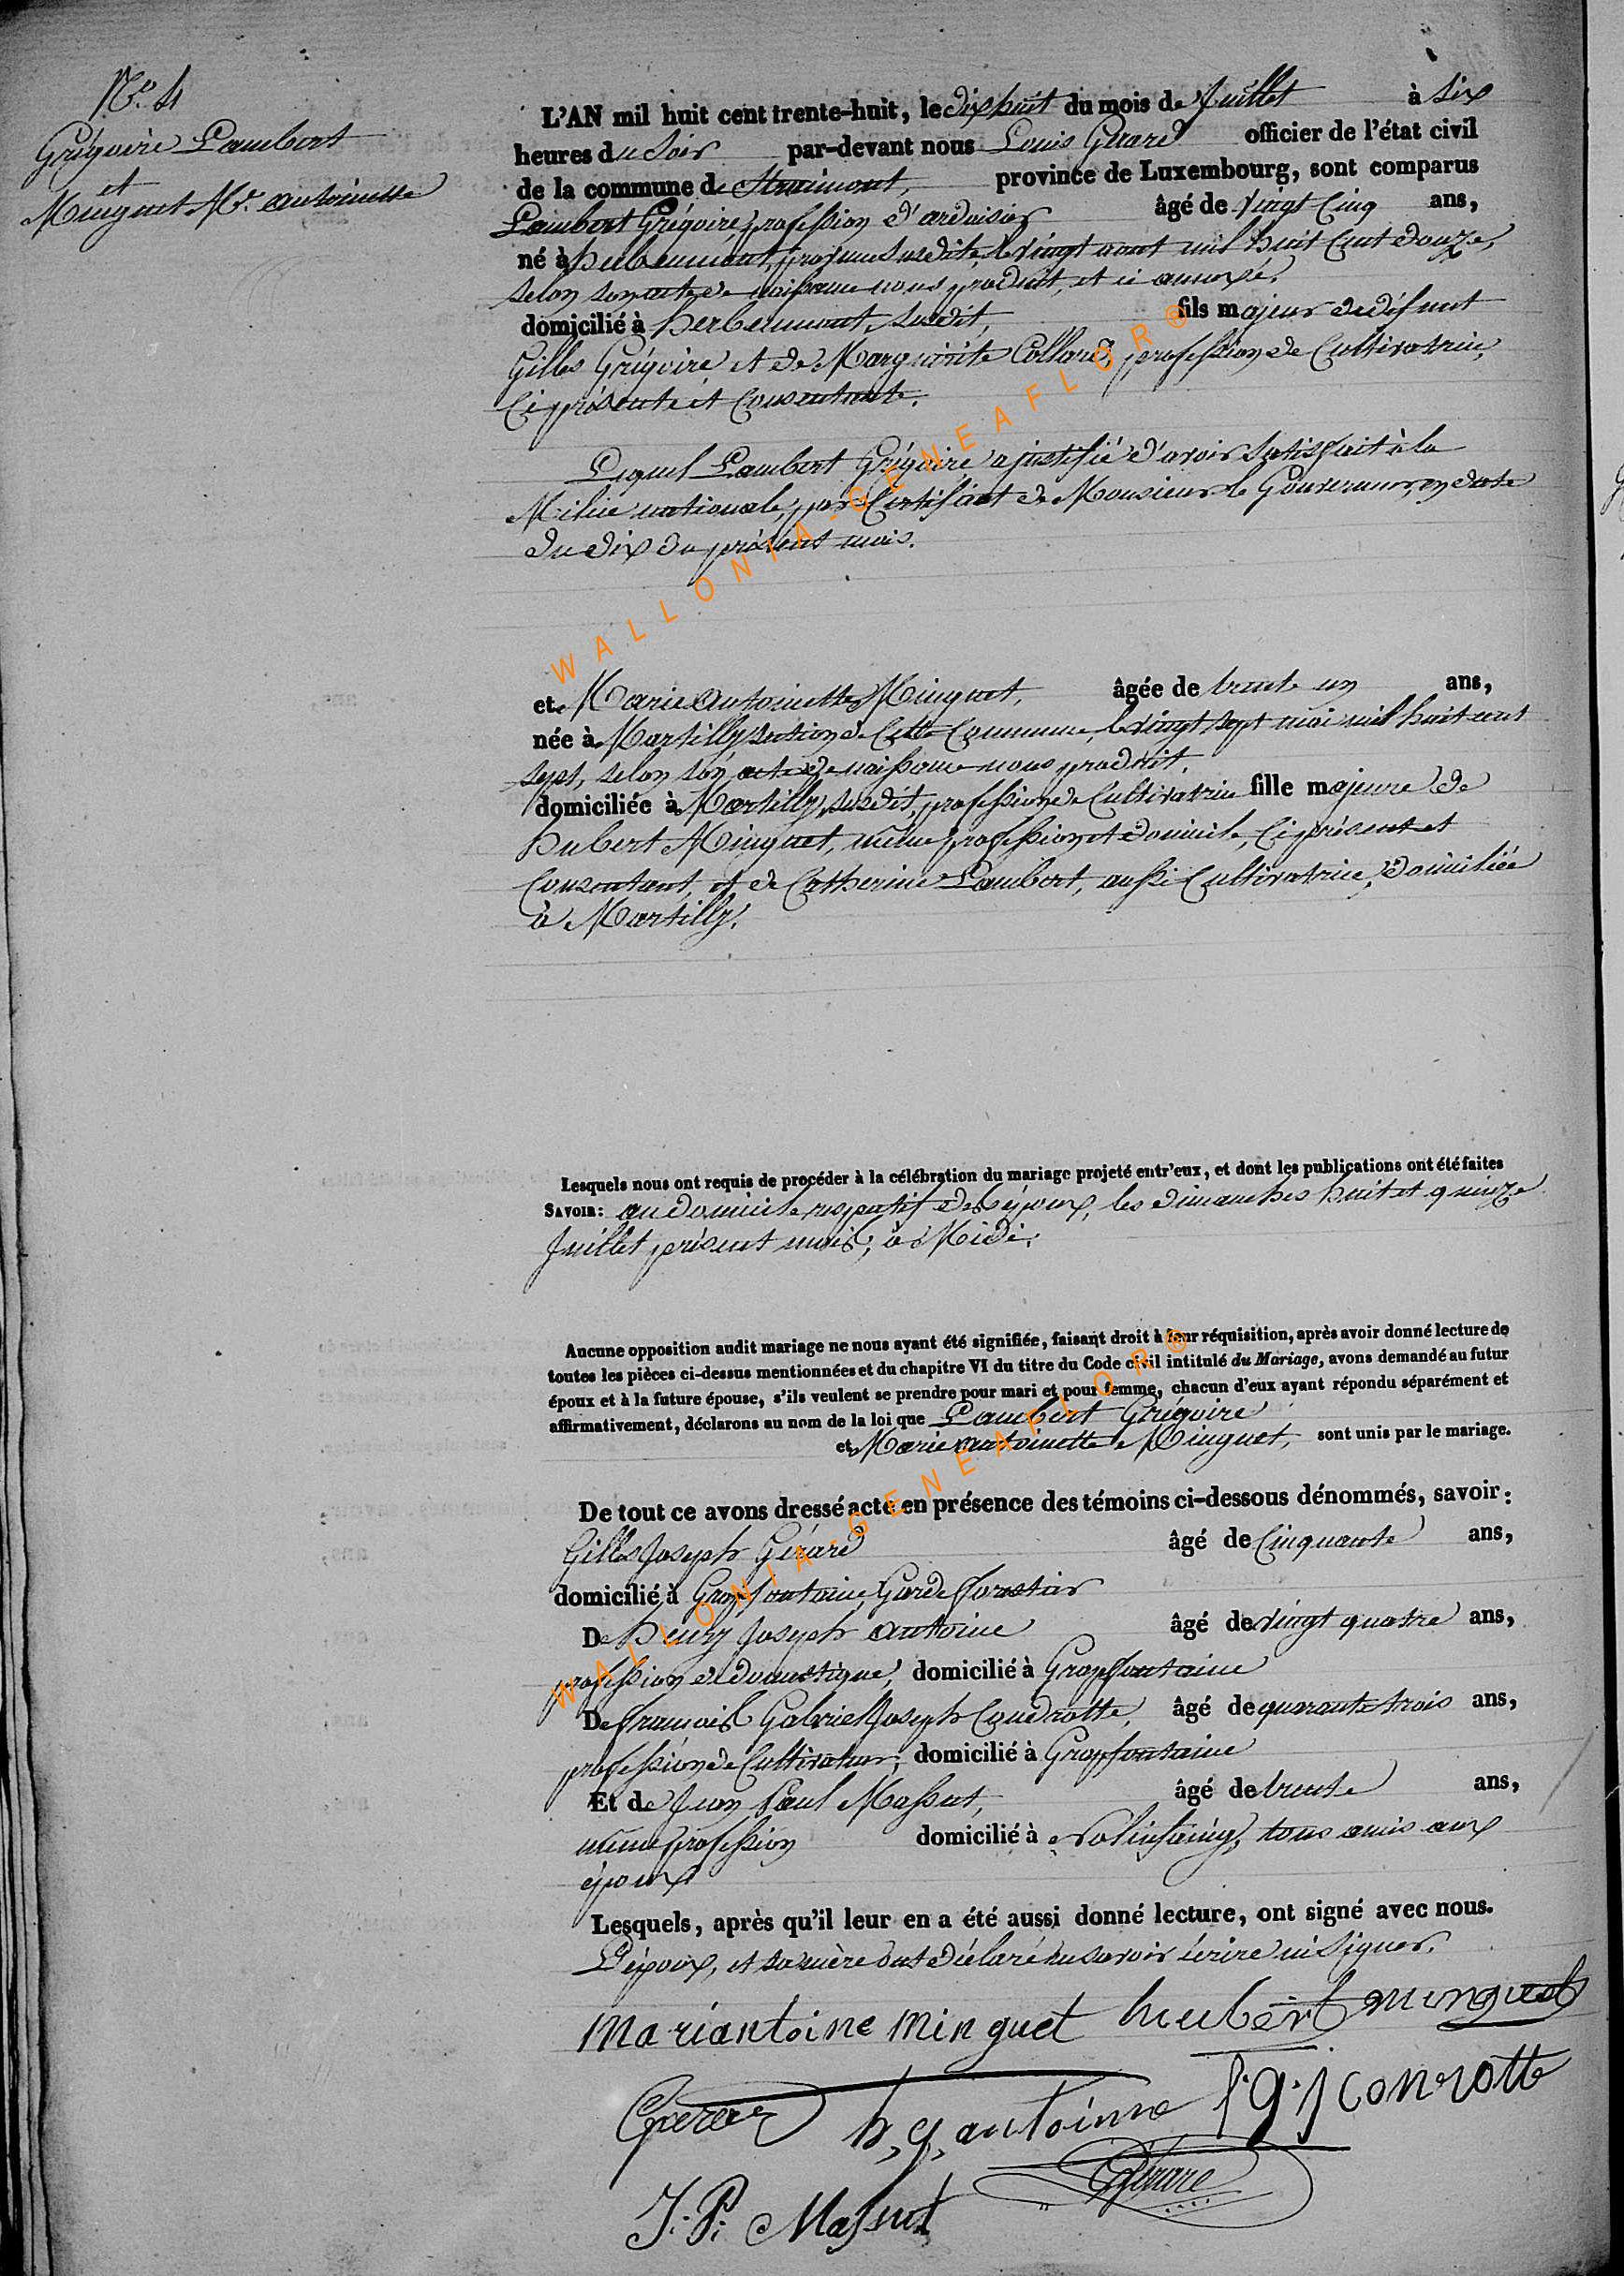 N.° 4
Grégoire Lambert
et
Minguet M.e antoinette
L'AN mil huit cent trente-huit, le dix huit du mois de Juillet à six
heures du Soir par-devant nous Louis Gérard officier de l'état civil
de la commune de Straimont, province de Luxembourg, sont comparus
Lambert Grégoire, profession d'ardoisier âgé de Vingt Cinq ans,
né à herbeumont, province susdite, le vingt aout mil huit Cent douze,
selon son acte de naissance nous produit, et ci annexé.
domicilié à herbeumont, susdit, fils majeur de défunt
Gilles Grégoire, et de Marguerite Collard, profession de Cultivatrice,
Ci présente et Consentante.
Lequel Lambert Grégoire a justifié d'avoir satisfait à la
Milice nationale, par Certificat de Monsieur le Gouverneur, en date
du dix du présent mois.
et Marie Antoinette Minguet, âgée de trente un ans,
née à Martilly, section de Cette Commune, le vingt sept mai mil huit cent
sept, selon son acte de naissance nous produit,
domiciliée à Martilly, susdit, profession de Cultivatrice fille majeure de
hubert Minguet, même profession et domicile, Ci présent et
Consentant, et de Catherine Lambert, aussi Cultivatrice, domiciliée
à Martilly.
Lesquels nous ont requis de procéder à la célébration du mariage projeté entr'eux, et dont les publications ont été faites
SAVOIR: au domicile respectif des époux, les dimanches huit et quinze
Juillet présent mois, à Midi.
Aucune opposition audit mariage ne nous ayant été signifiée, faisant droit à leur réquisition, après avoir donné lecture de
toutes les pièces ci-dessus mentionnées et du chapitre VI du titre du Code civil intitulé du Mariage, avons demandé au futur
époux et à la future épouse, s'ils veulent se prendre pour mari et pour femme, chacun d'eux ayant répondu séparément et
affirmativement, déclarons au nom de la loi que Lambert Grégoire
et Marie antoinette Minguet, sont unis par le mariage.
De tout ce avons dressé acte en présence des témoins ci-dessous dénommés, savoir:
Gilles Joseph Gérard âgé de Cinquante ans,
domicilié à Grapfontaine, Garde forestier
De henry Joseph antoine âgé de vingt quatre ans,
profession de domestique, domicilié à Grapfontaine
De françois Gabriel Joseph Condrotte, âgé de quarante trois ans,
profession de Cultivateur, domicilié à Grapfontaine
Et de Jean Paul Massut, âgé de trente ans,
même profession domicilié à Nolinfaing, tous amis aux
époux
Lesquels, après qu'il leur en a été aussi donné lecture, ont signé avec nous.
L'époux, et sa mère ont déclaré ne savoir écrire ni signer.
mariantoine minguet hubert minguet
Gerard h, g, antoinne f. g. j conrotte
J. P. Massut Gérard
WALLONIA-GENEAFLOR®
WALLONIA-GENEAFLOR®